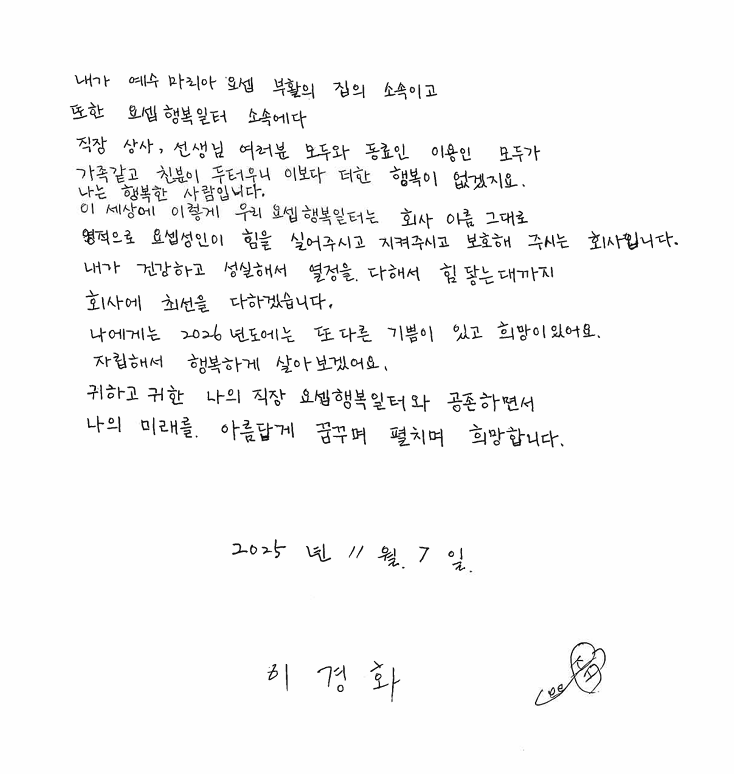 내가 예수 마리아 요셉 부활의 집의 소속이고
또한 요셉행복일터 소속에다
직장 상사, 선생님 여러분 모두와 동료인 이용인 모두가
가족같고 친분이 두터우니 이보다 더한 행복이 없겠지요.
나는 행복한 사람입니다.
이 세상에 이렇게 우리 요셉행복일터는 회사 이름 그대로
영적으로 요셉성인이 힘을 실어주시고 지켜주시고 보호해 주시는 회사입니다.
내가 건강하고 성실해서 열정을 다해서 힘 닿는대까지
회사에 최선을 다하겠습니다.
나에게는 2026년도에는 또 다른 기쁨이 있고 희망이 있어요.
자립해서 행복하게 살아보겠어요.
귀하고 귀한 나의 직장 요셉행복일터와 공존하면서
나의 미래를 아름답게 꿈꾸며 펼치며 희망합니다.
2025 년 11 월. 7 일.
이 경 화